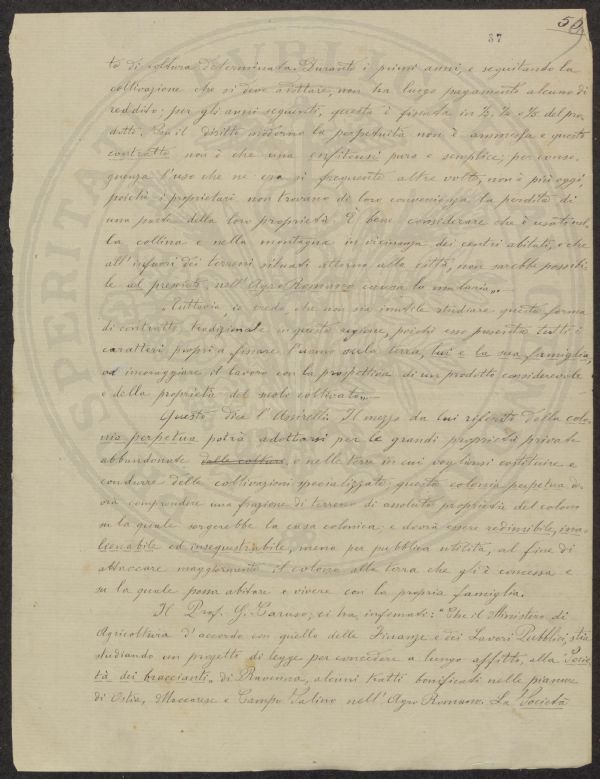 50
37
to di coltura determinata. Durante i primi anni, e seguitando la
coltivazione che si deve adottare, non ha luogo pagamento alcuno di
reddito: per gli anni seguenti, questo è fissato in ½, ¼ e ⅕ del pro-
dotto. Per il diritto moderno la perpetuità non è ammessa e questo
contratto non è che una enfiteusi pura e semplice; per conse-
guenza l'uso che ne era sì frequente altre volte, non è più oggi,
poichè i proprietari non trovano di loro convenienza la perdita di
una parte della loro proprietà. È bene considerare che è usata nel-
la collina e nella montagna in vicinanza dei centri abitati, e che
all'infuori dei terreni situati attorno alla città, non sarebbe possibi-
le al presente, nell'Agro Romano causa la malaria„.
„Tuttavia, io credo, che non sia inutile studiare questa forma
di contratto tradizionale in questa regione, poichè esso presenta tutti i
caratteri proprii a fissare l'uomo sulla terra, lui e la sua famiglia,
ed incoraggiare il lavoro con la prospettiva di un prodotto considerevole
e della proprietà del suolo coltivato„.
Questo dice l'. Il mezzo da lui riferito della colo-
nia perpetua potrà adottarsi per le grandi proprietà private
abbandonate dalle colture, o nelle terre in cui vogliansi costituire e
condurre delle coltivazioni specializzate; questa colonia perpetua do-
vrà comprendere una frazione di terreno di assoluta proprietà del colono
su la quale sorgerebbe la casa colonica; e dovrà essere redimibile, ina-
lienabile ed insequestrabile, meno per pubblica utilità, al fine di
attaccare maggiormente il colono alla terra che gli è concessa e
su la quale possa abitare e vivere con la propria famiglia.
Il Prof. G. Caruso, ci ha informati: "Che il Ministero di
Agricoltura d'accordo con quello delle Finanze e dei Lavori Pubblici, stia
studiando un progetto di legge per concedere a lungo affitto, alla Socie-
tà dei braccianti di Ravenna, alcuni tratti bonificati nelle pianure
di Ostia, Maccarese e Campo Salino nell'Agro Romano. La Società